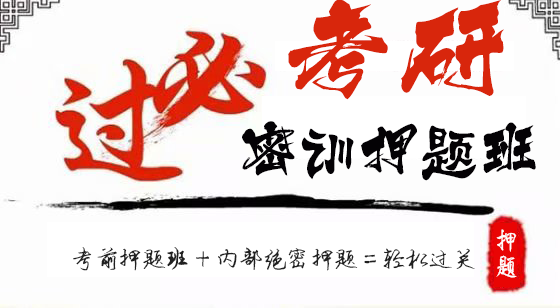 必过
考研
密训押题班
考前押题班+内部绝密押题=轻松过关
押题